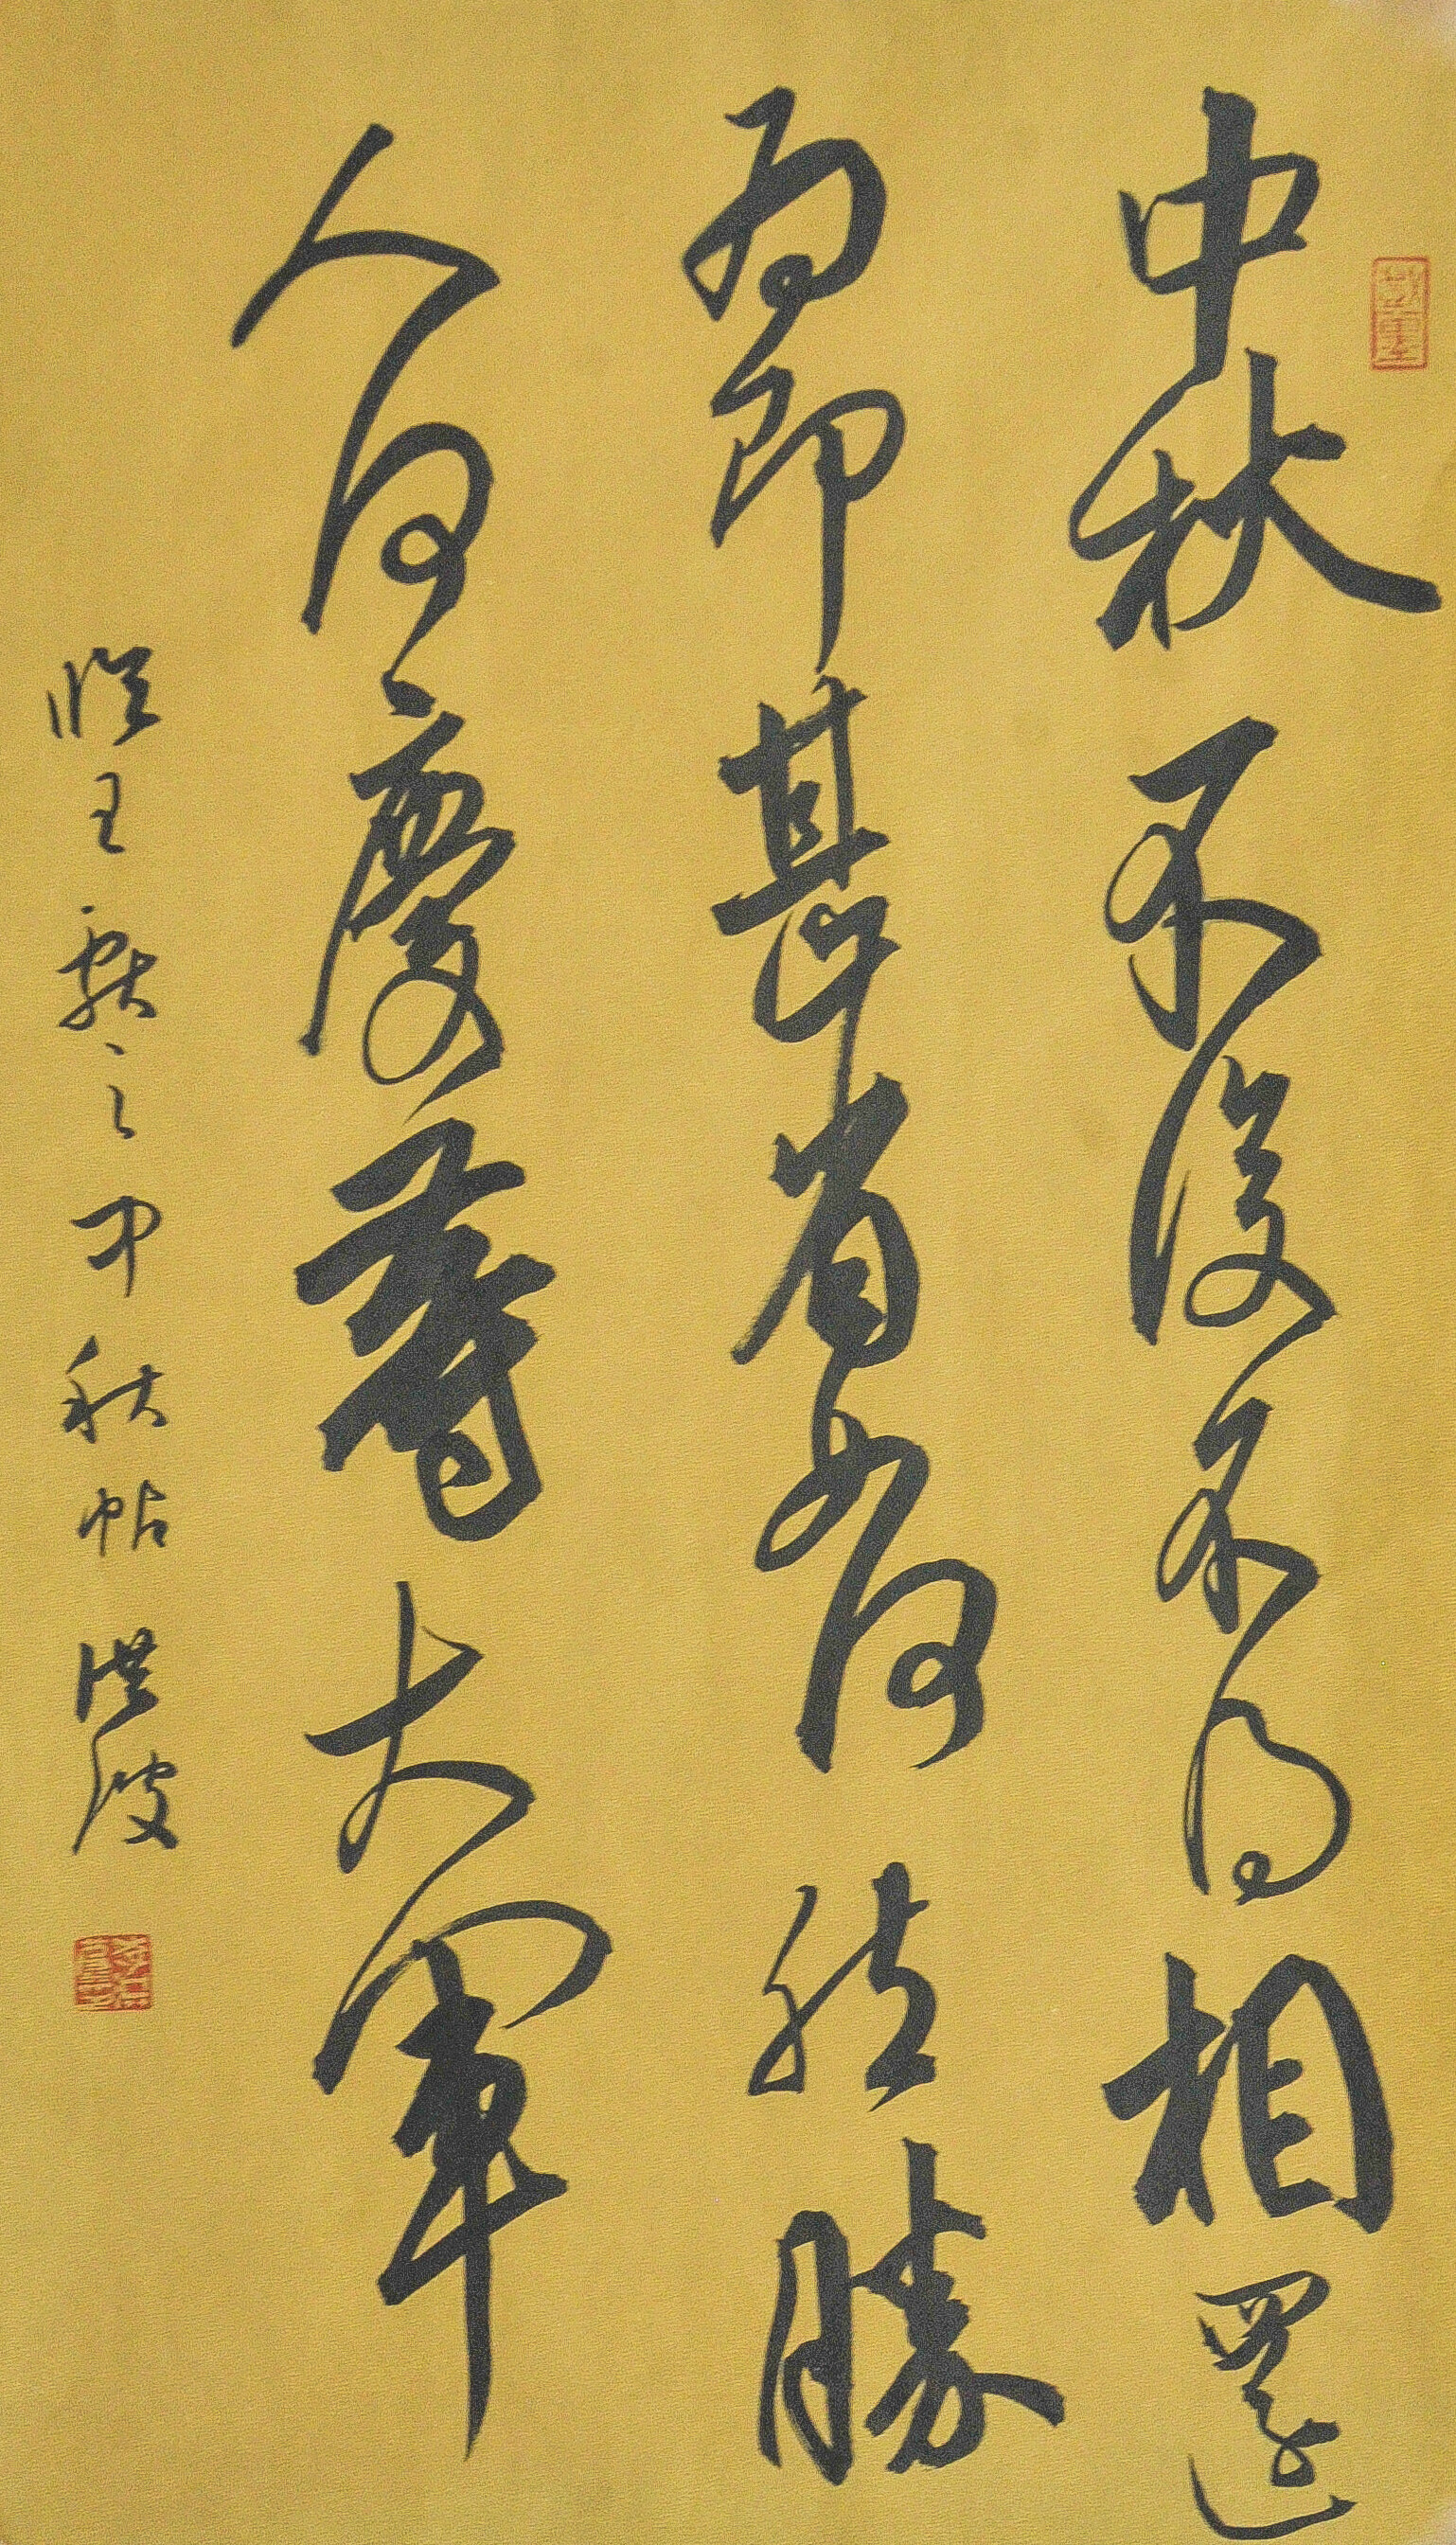 中秋不復不得相還
為即甚省如何然勝
人何慶等大軍
臨王獻之中秋帖 洪波